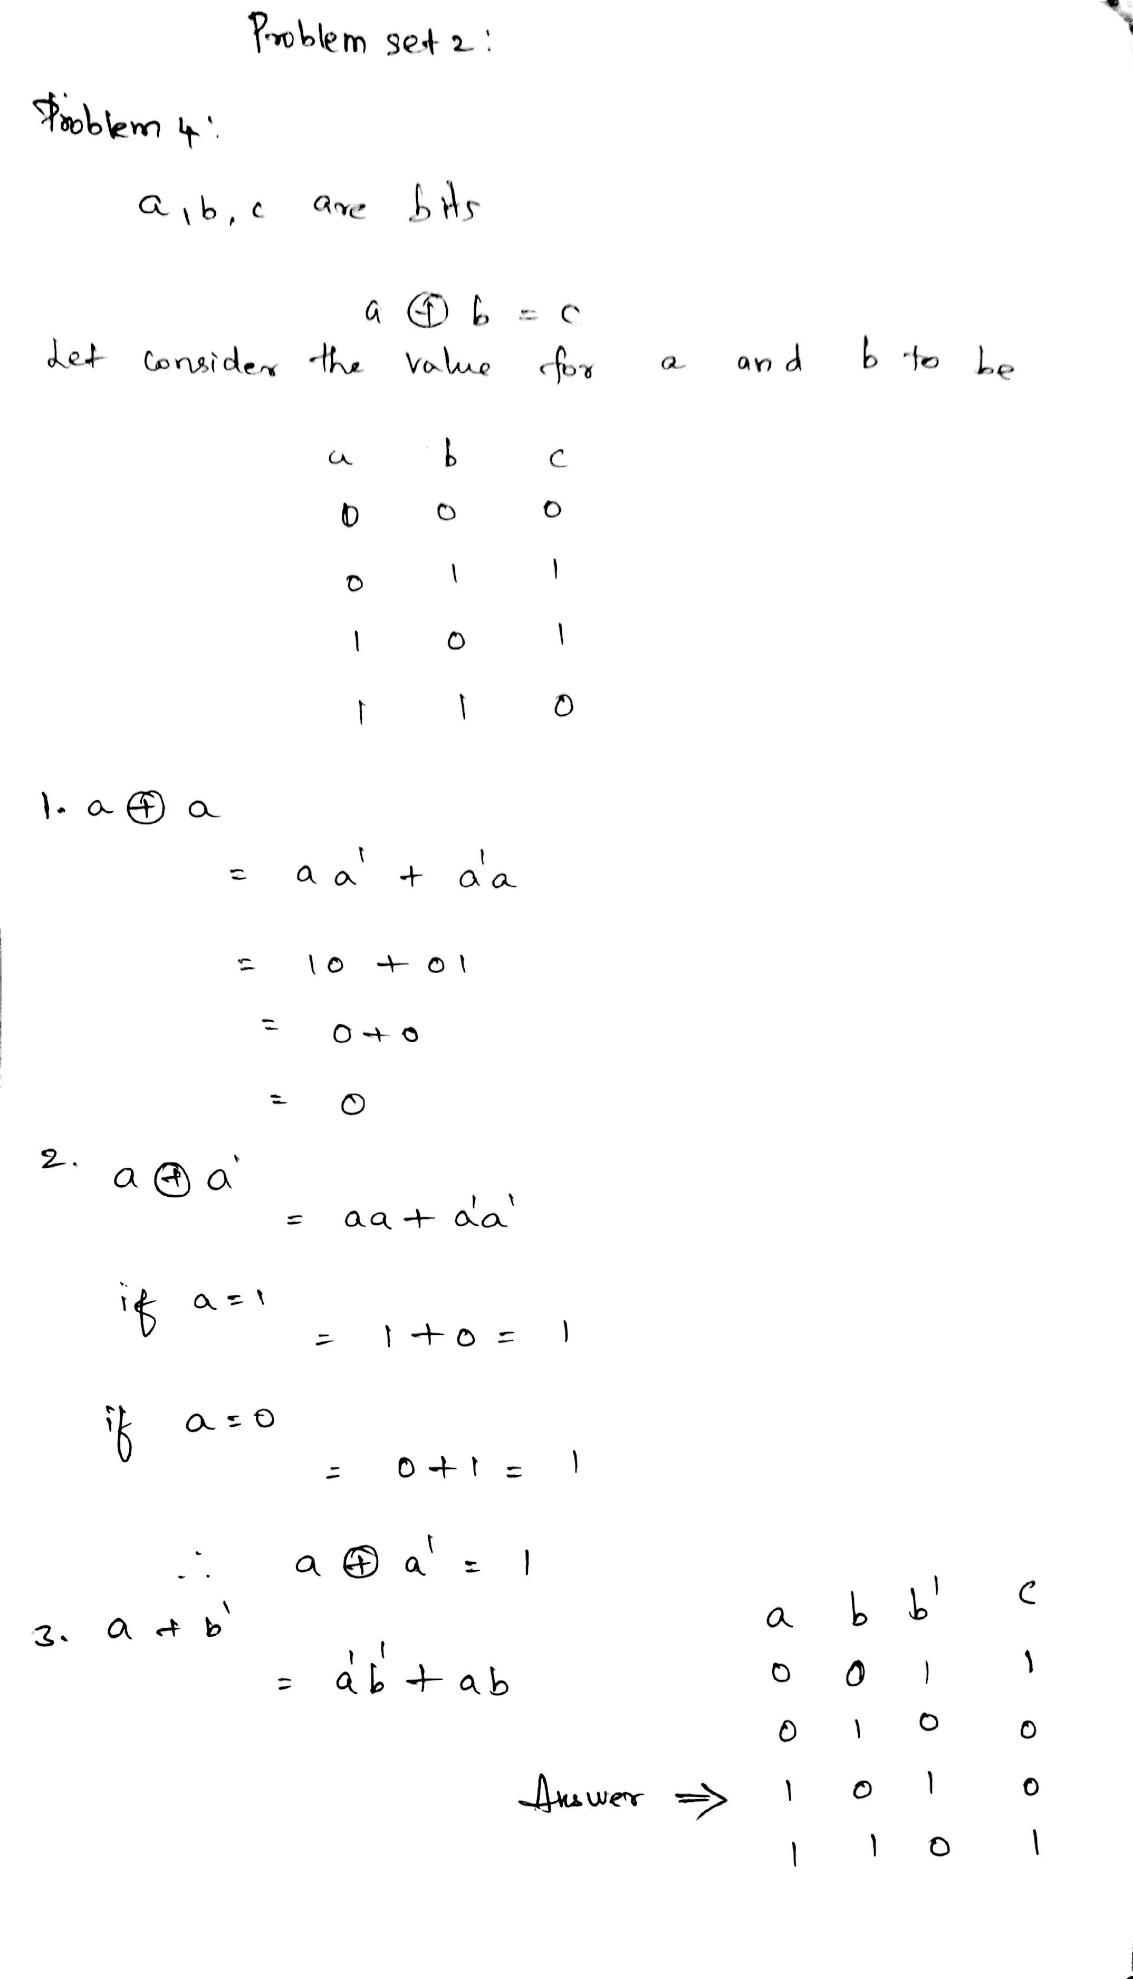 Problem set 2:
Problem 4:
a, b, c are bits
a ⊕ b = c
Let consider the value for a and b to be
a b c
0 0 0
0 1 1
1 0 1
1 1 0
1. a ⊕ a
= aa' + a'a
= 10 + 01
= 0+0
= 0
2. a ⊕ a'
= aa + a'a'
if a=1
= 1+0 = 1
if a=0
= 0+1 = 1
∴ a ⊕ a' = 1
3. a + b'
= a'b' + ab
Answer ⇒
a b b' c
0 0 1 1
0 1 0 0
1 0 1 0
1 1 0 1